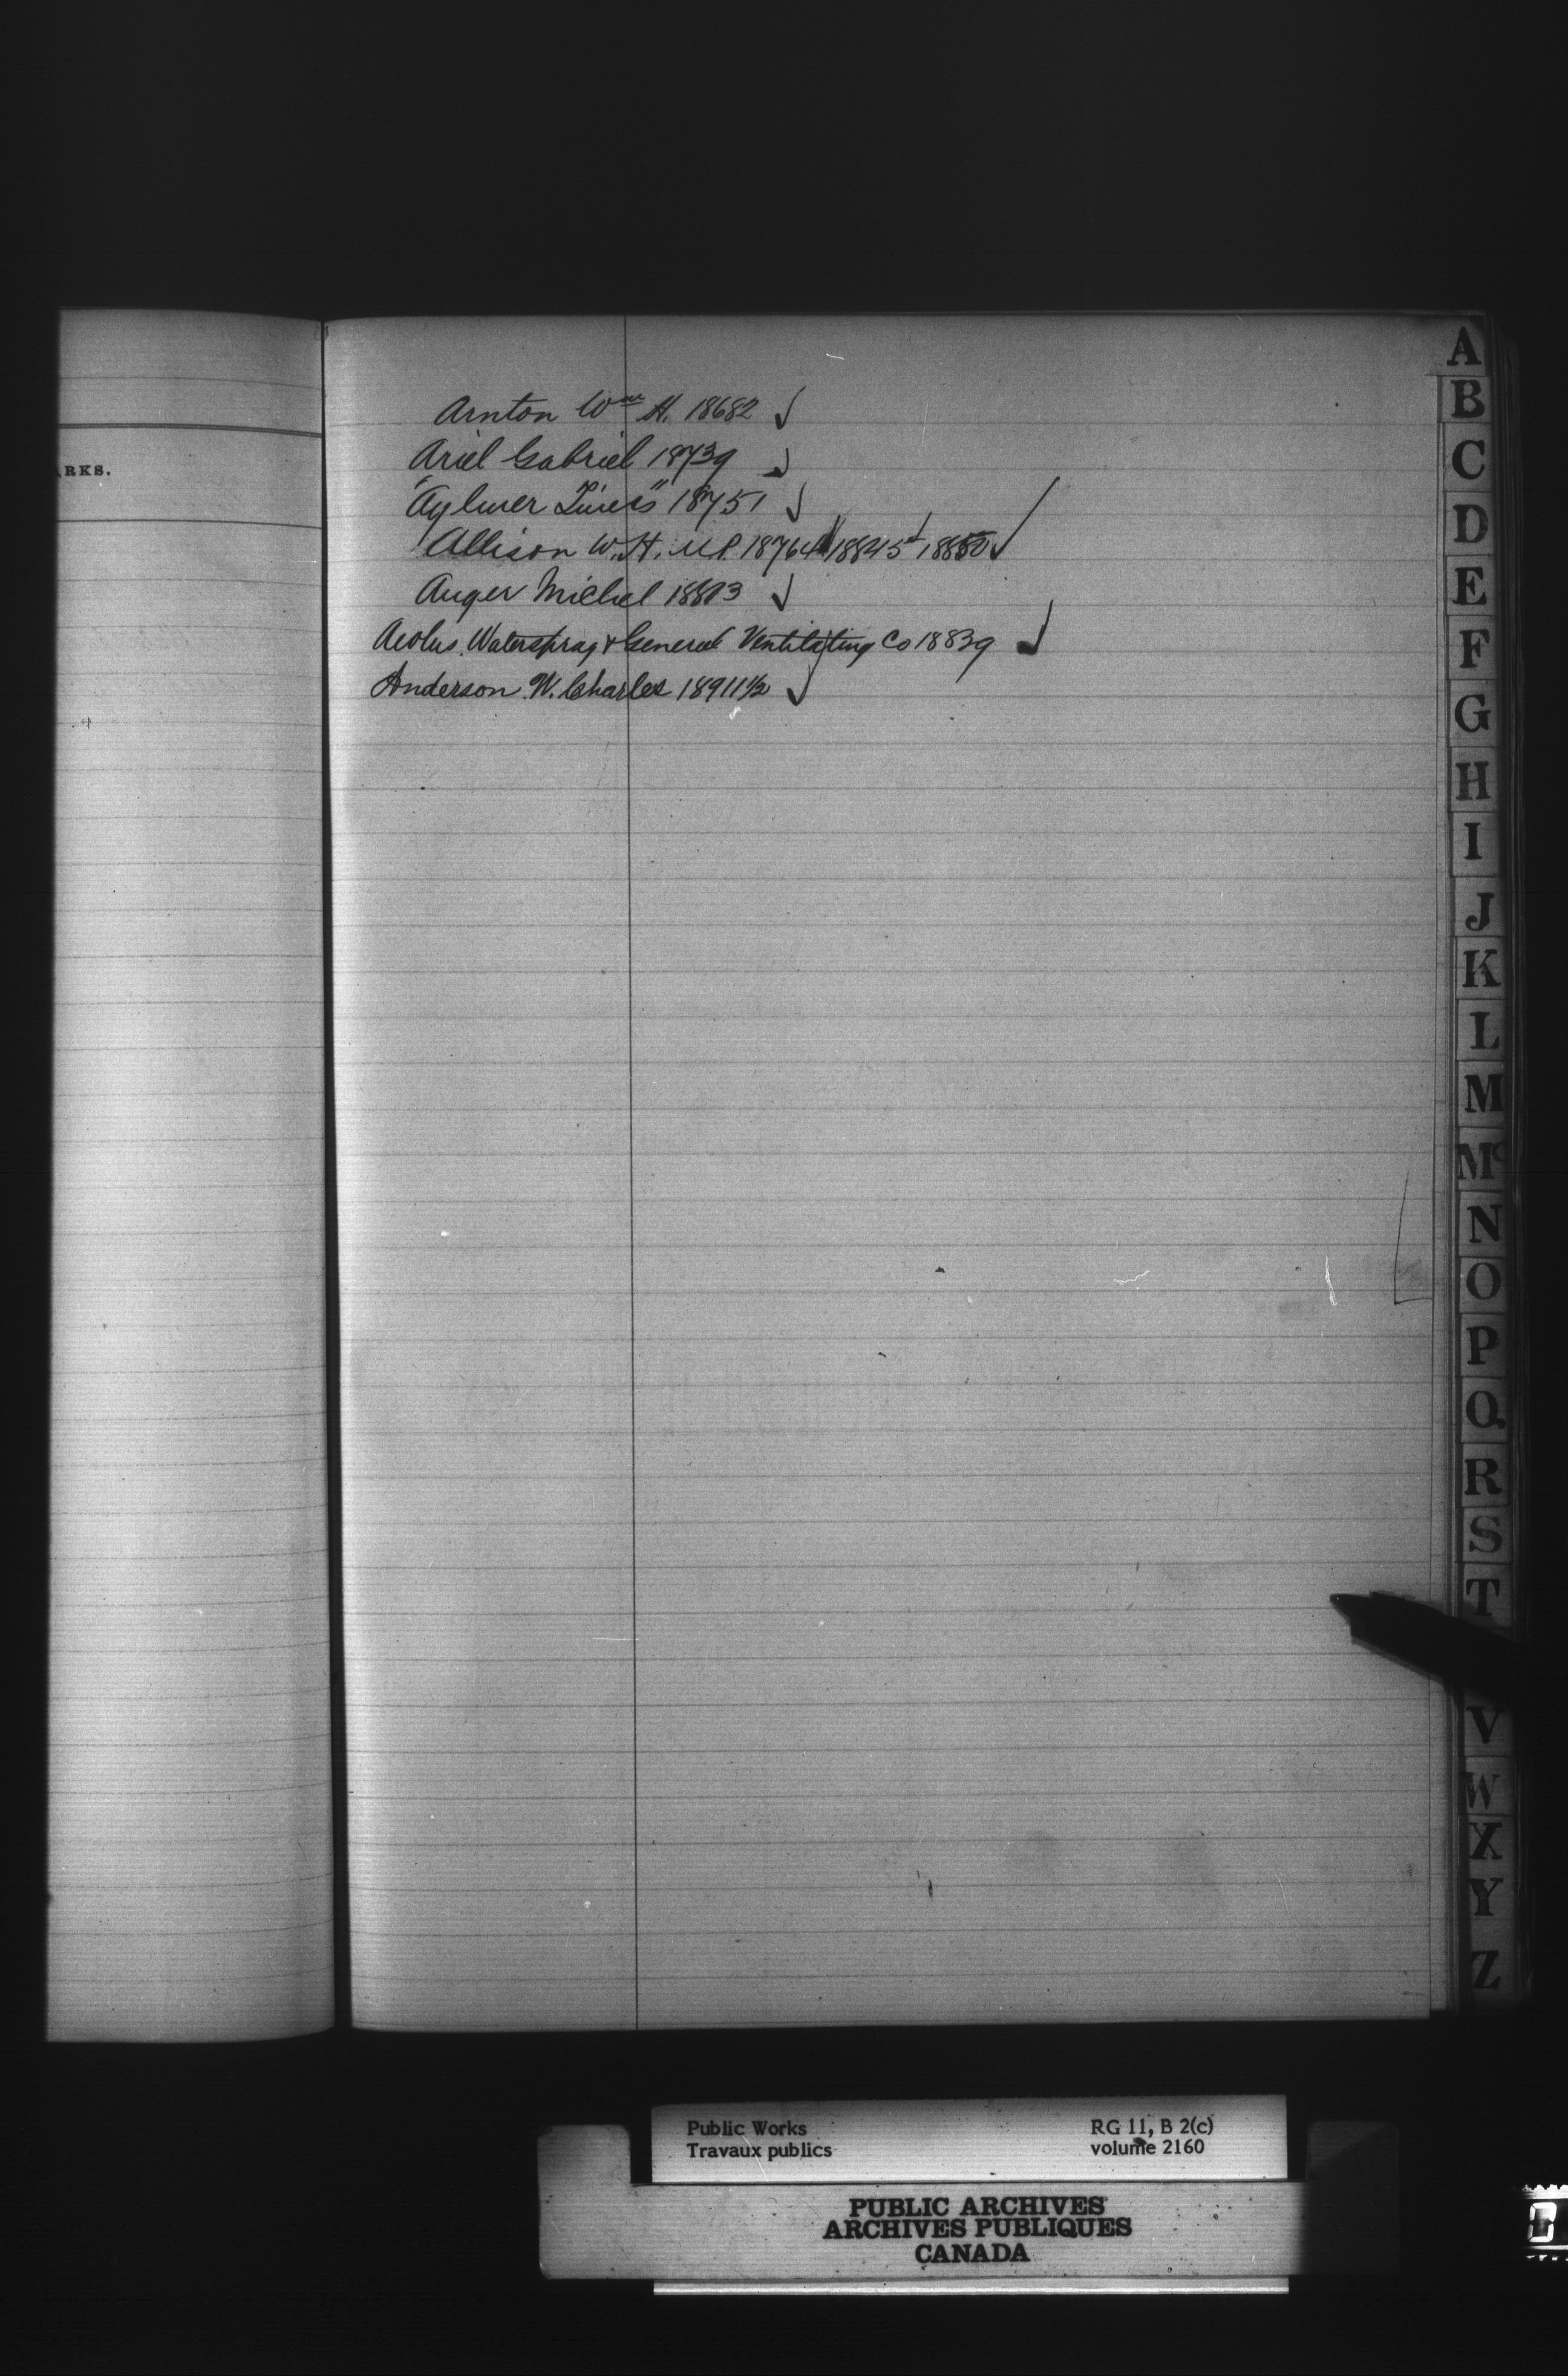 ARKS.
Arnton Wm H. 18682 ✓
Ariel Gabriel 18739 ✓
"Aylmer Times" 18751 ✓
Allison W.H. M.P. 18764 ✓ 18845 ✓ 18880 ✓
Auger Michel 18813 ✓
Aeolus Waterspray & General Ventilating Co 18839 ✓
Anderson W. Charles 18911½ ✓
A
B
C
D
E
F
G
H
I
J
K
L
M
Mc
N
O
P
Q
R
S
T
V
W
X
Y
Z
Public Works RG 11, B 2(c)
Travaux publics volume 2160
PUBLIC ARCHIVES
ARCHIVES PUBLIQUES
CANADA